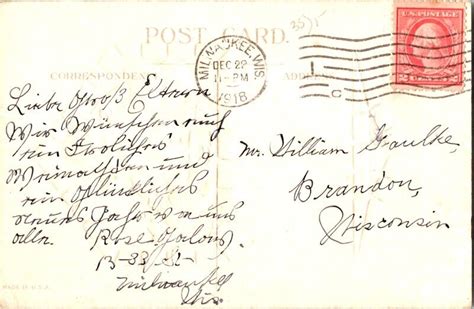 35/5
POST CARD
CORRESPONDENCE
MILWAUKEE, WIS.
DEC 22
11-PM
1918
U.S. POSTAGE
2 CENTS 2
Liebe Groß Eltern
Wir Wünschen euch
ein Froliches
Weinachten und
ein Glückliches
neues Jahr von uns
alle. Rose
Milwaukee
Wis
Mr. William Gaulke,
Brandon,
Wisconsin
MADE IN U.S.A.